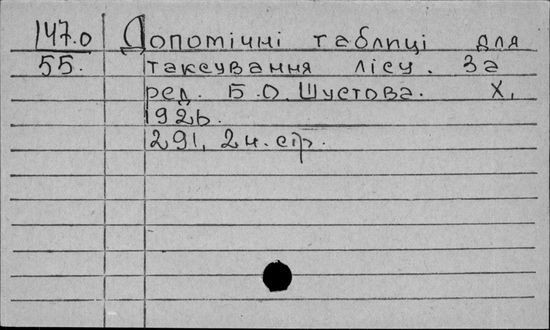 147.0 Допоміжні таблиці для
55. таксування лісу. За
ред. Б.О. Шустова. Х,
1926.
291, 2 н. стр.